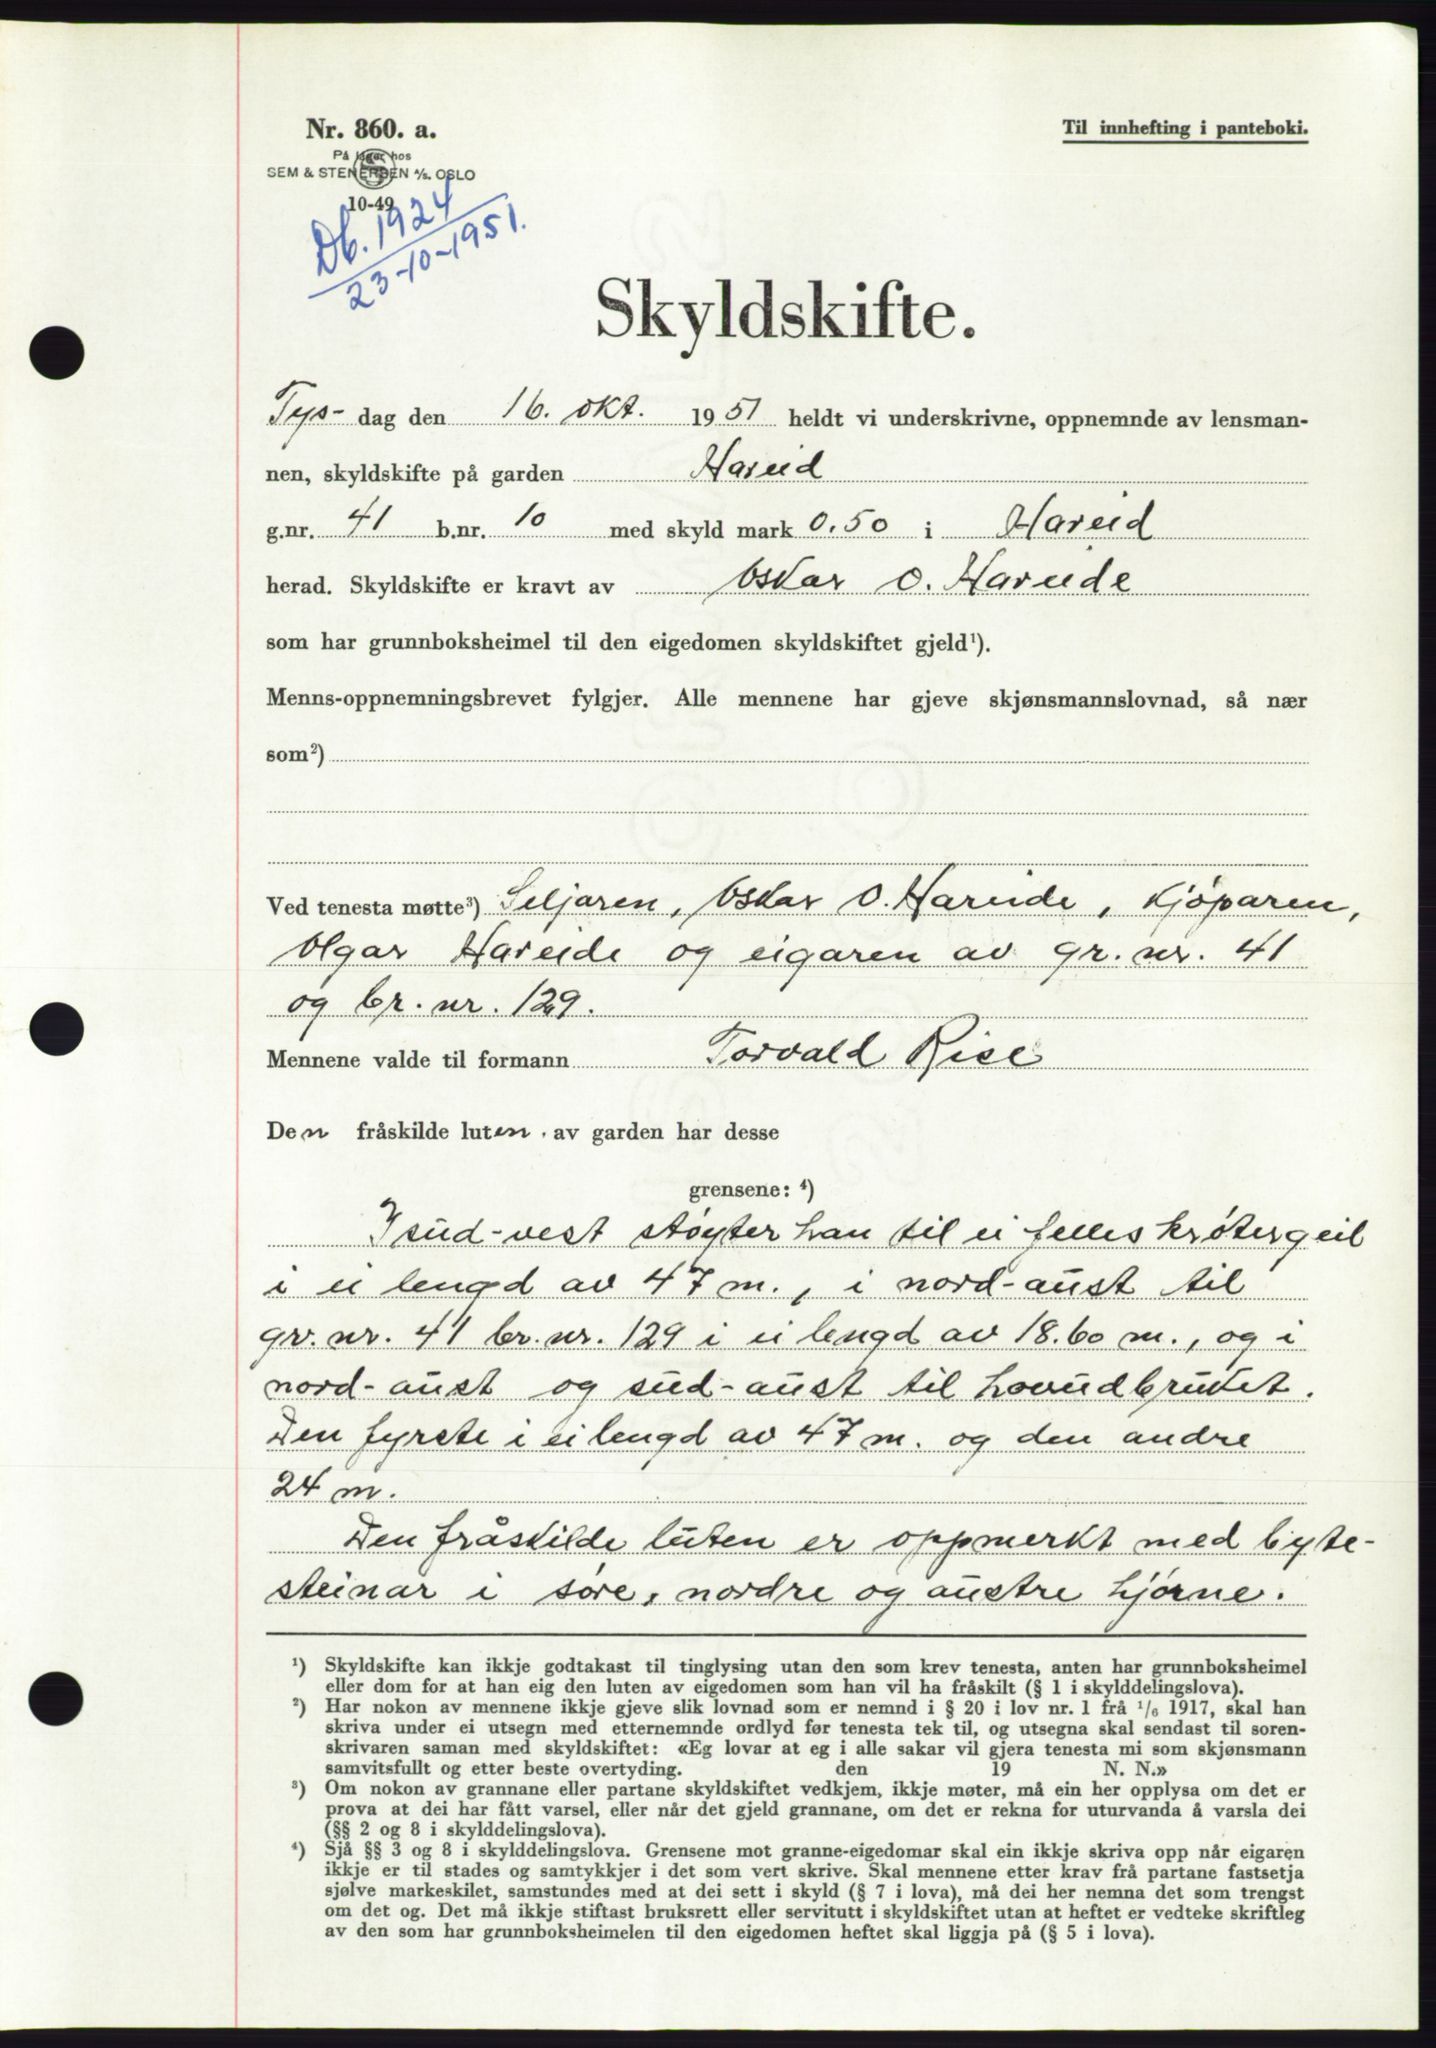 Nr. 860. a.
Til innhefting i panteboki.
På lager hos
SEM & STENERSEN A/S. OSLO
10-49
Db. 1924
23-10-1951.
Skyldskifte.
Tys- dag den 16. okt. 1951 heldt vi underskrivne, oppnemnde av lensman-
nen, skyldskifte på garden Hareid
g.nr. 41 b.nr. 10 med skyld mark 0.50 i Hareid
herad. Skyldskifte er kravt av Oskar O. Hareide
som har grunnboksheimel til den eigedomen skyldskiftet gjeld¹).
Menns-oppnemningsbrevet fylgjer. Alle mennene har gjeve skjønsmannslovnad, så nær
som²)
Ved tenesta møtte³) Seljaren, Oskar O. Hareide, kjøparen,
Olgar Hareide og eigaren av gr. nr. 41
og br. nr. 129.
Mennene valde til formann Torvald Rise
Den fråskilde luten av garden har desse
grensene: ⁴)
I sud-vest støyter han til ei felles krøtergeil
i ei lengd av 47 m., i nord-aust til
gr. nr. 41 br. nr. 129 i ei lengd av 18.60 m., og i
nord-aust og sud-aust til hovudbruket.
Den fyrste i ei lengd av 47 m. og den andre
24 m.
Den fråskilde luten er oppmerkt med byte-
steinar i søre, nordre og austre hjørne.
¹) Skyldskifte kan ikkje godtakast til tinglysing utan den som krev tenesta, anten har grunnboksheimel
eller dom for at han eig den luten av eigedomen som han vil ha fråskilt (§ 1 i skylddelingslova).
²) Har nokon av mennene ikkje gjeve slik lovnad som er nemnd i § 20 i lov nr. 1 frå ¹/₆ 1917, skal han
skriva under ei utsegn med etternemnde ordlyd før tenesta tek til, og utsegna skal sendast til soren-
skrivaren saman med skyldskiftet: «Eg lovar at eg i alle sakar vil gjera tenesta mi som skjønsmann
samvitsfullt og etter beste overtyding. den 19 N. N.»
³) Om nokon av grannane eller partane skyldskiftet vedkjem, ikkje møter, må ein her opplysa om det er
prova at dei har fått varsel, eller når det gjeld grannane, om det er rekna for uturvanda å varsla dei
(§§ 2 og 8 i skylddelingslova).
⁴) Sjå §§ 3 og 8 i skylddelingslova. Grensene mot granne-eigedomar skal ein ikkje skriva opp når eigaren
ikkje er til stades og samtykkjer i det som vert skrive. Skal mennene etter krav frå partane fastsetja
sjølve markeskilet, samstundes med at dei sett i skyld (§ 7 i lova), må dei her nemna det som trengst
om det og. Det må ikkje stiftast bruksrett eller servitutt i skyldskiftet utan at heftet er vedteke skriftleg
av den som har grunnboksheimelen til den eigedomen heftet skal liggja på (§ 5 i lova).